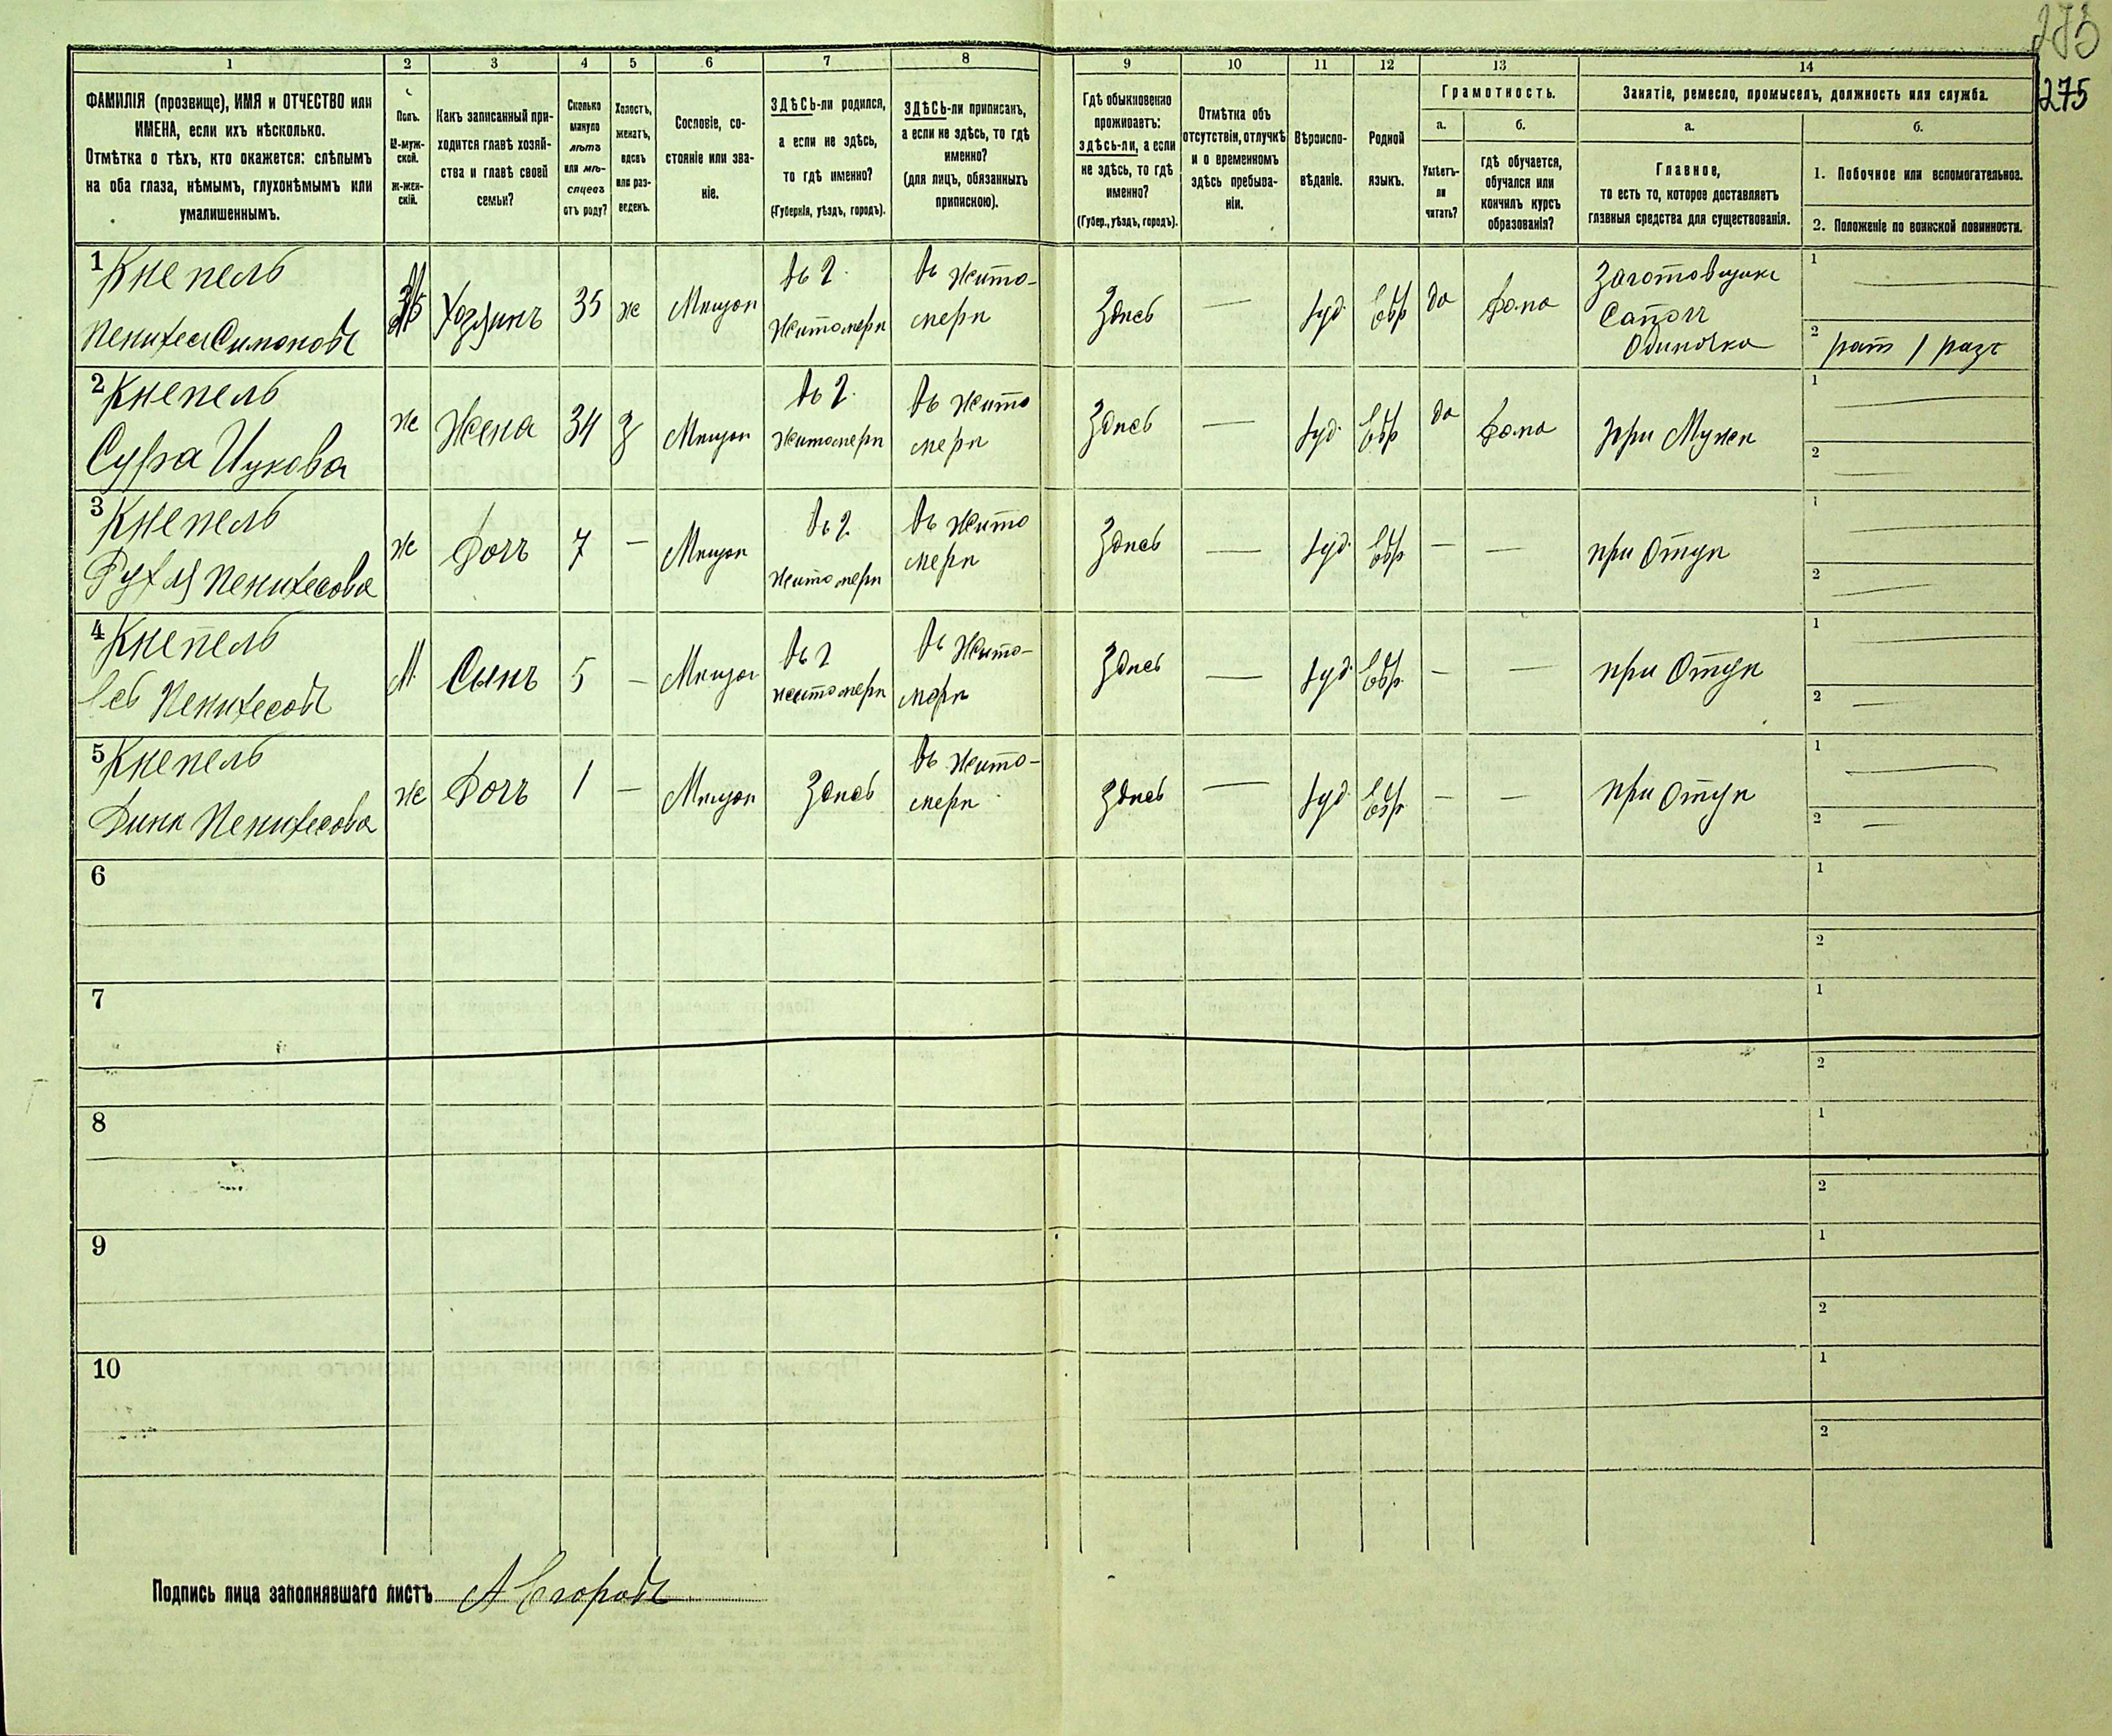 275
275
1
2
3
4
5
6
7
8
9
10
11
12
13
14
ФАМИЛІЯ (прозвище), ИМЯ и ОТЧЕСТВО или
ИМЕНА, если ихъ нѣсколько.
Отмѣтка о тѣхъ, кто окажется: слѣпымъ
на оба глаза, нѣмымъ, глухонѣмымъ или
умалишеннымъ.
Полъ.
М-муж-
ской.
Ж-жен-
скій.
Какъ записанный при-
ходится главѣ хозяй-
ства и главѣ своей
семьи?
Сколько
минуло
лѣтъ
или мѣ-
сяцевъ
отъ роду?
Холостъ,
женатъ,
вдовъ
или раз-
веденъ.
Сословіе, со-
стояніе или зва-
ніе.
ЗДѢСЬ-ли родился,
а если не здѣсь,
то гдѣ именно?
(Губернія, уѣздъ, городъ).
ЗДѢСЬ-ли приписанъ,
а если не здѣсь, то гдѣ
именно?
(для лицъ, обязанныхъ
припискою).
Гдѣ обыкновенно
проживаетъ:
здѣсь-ли, а если
не здѣсь, то гдѣ
именно?
(Губер., уѣздъ, городъ).
Отмѣтка объ
отсутствіи, отлучкѣ
и о временномъ
здѣсь пребыва-
ніи.
Вѣроиспо-
вѣданіе.
Родной
языкъ.
Грамотность.
а.
Умѣетъ-
ли
читать?
б.
гдѣ обучается,
обучался или
кончилъ курсъ
образованія?
Занятіе, ремесло, промыселъ, должность или служба.
а.
Главное,
то есть то, которое доставляетъ
главныя средства для существованія.
б.
1. Побочное или вспомогательное.
2. Положеніе по воинской повинности.
1 Кнепель
Пенихес Симоновъ
М
Хозяинъ
35
же
Мещан
въ г.
Житомерѣ
въ Жито-
мерѣ
Здѣсь
—
Іуд.
Евр
да
дома
Заготовщикъ
Сапогъ
Одиночка
1 —
2 рат 1 разъ
2 Кнепель
Сура Ицкова
же
Жена
34
З
Мещан
въ г.
Житомерѣ
въ Жито
мерѣ
Здѣсь
—
Іуд.
Евр
да
дома
при Мужѣ
1 —
2 —
3 Кнепель
Рухля Пенихесова
же
Дочь
7
—
Мещан
въ г.
Житомерѣ
въ Жито
мерѣ
Здѣсь
—
Іуд.
Евр
—
—
при Отцѣ
1 —
2 —
4 Кнепель
Пенихесовъ
М.
Сынъ
5
—
Мещан
въ г
житомерѣ
въ Жито-
мерѣ
Здѣсь
—
Іуд.
Евр.
—
—
при Отцѣ
1 —
2 —
5 Кнепель
Пенихесова
же
Дочь
1
—
Мещан
Здѣсь
въ Жито-
мерѣ
Здѣсь
—
Іуд
Евр.
—
—
при Отцѣ
1 —
2 —
6
1
2
7
1
2
8
1
2
9
1
2
10
1
2
Подпись лица заполнявшаго листъ А Егоровъ